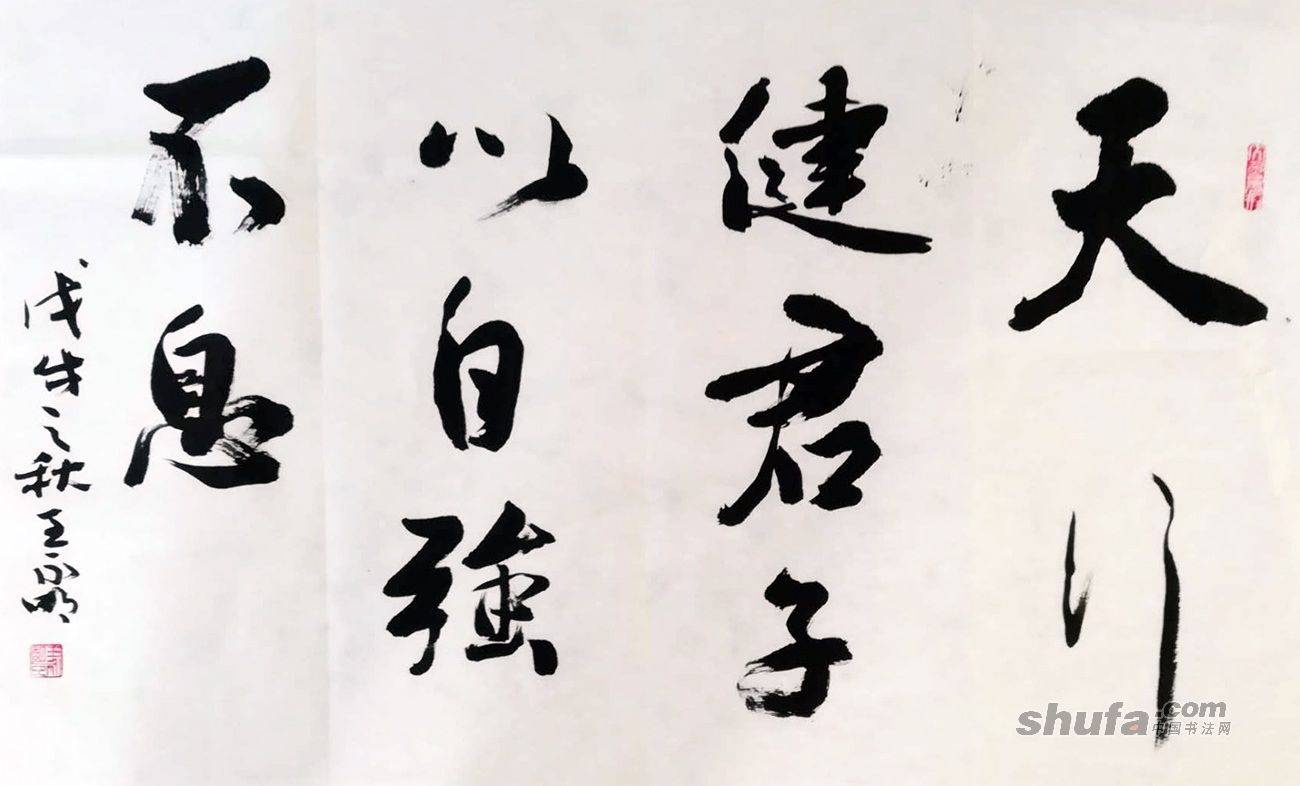 天行
健君子
以自強
不息
戊戌之秋王永明
shufa.com
中国书法网